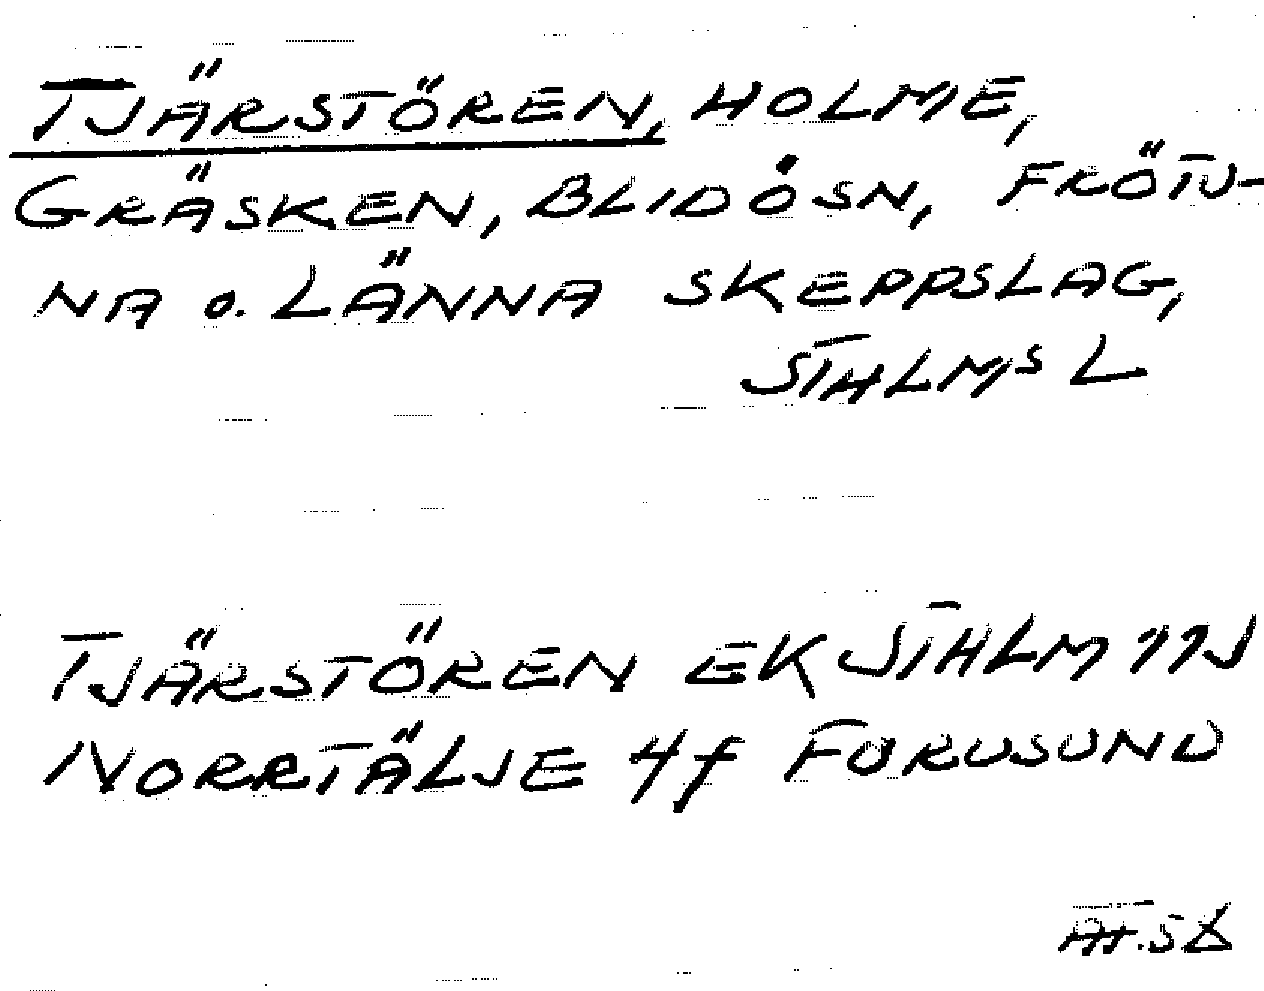 TJÄRSTÖREN, HOLME,
GRÄSKEN, BLIDÖSN, FRÖTU-
NA o. LÄNNA SKEPPSLAG,
STHLMS L
TJÄRSTÖREN EK STHLM 11J
NORRTÄLJE 4f FURUSUND